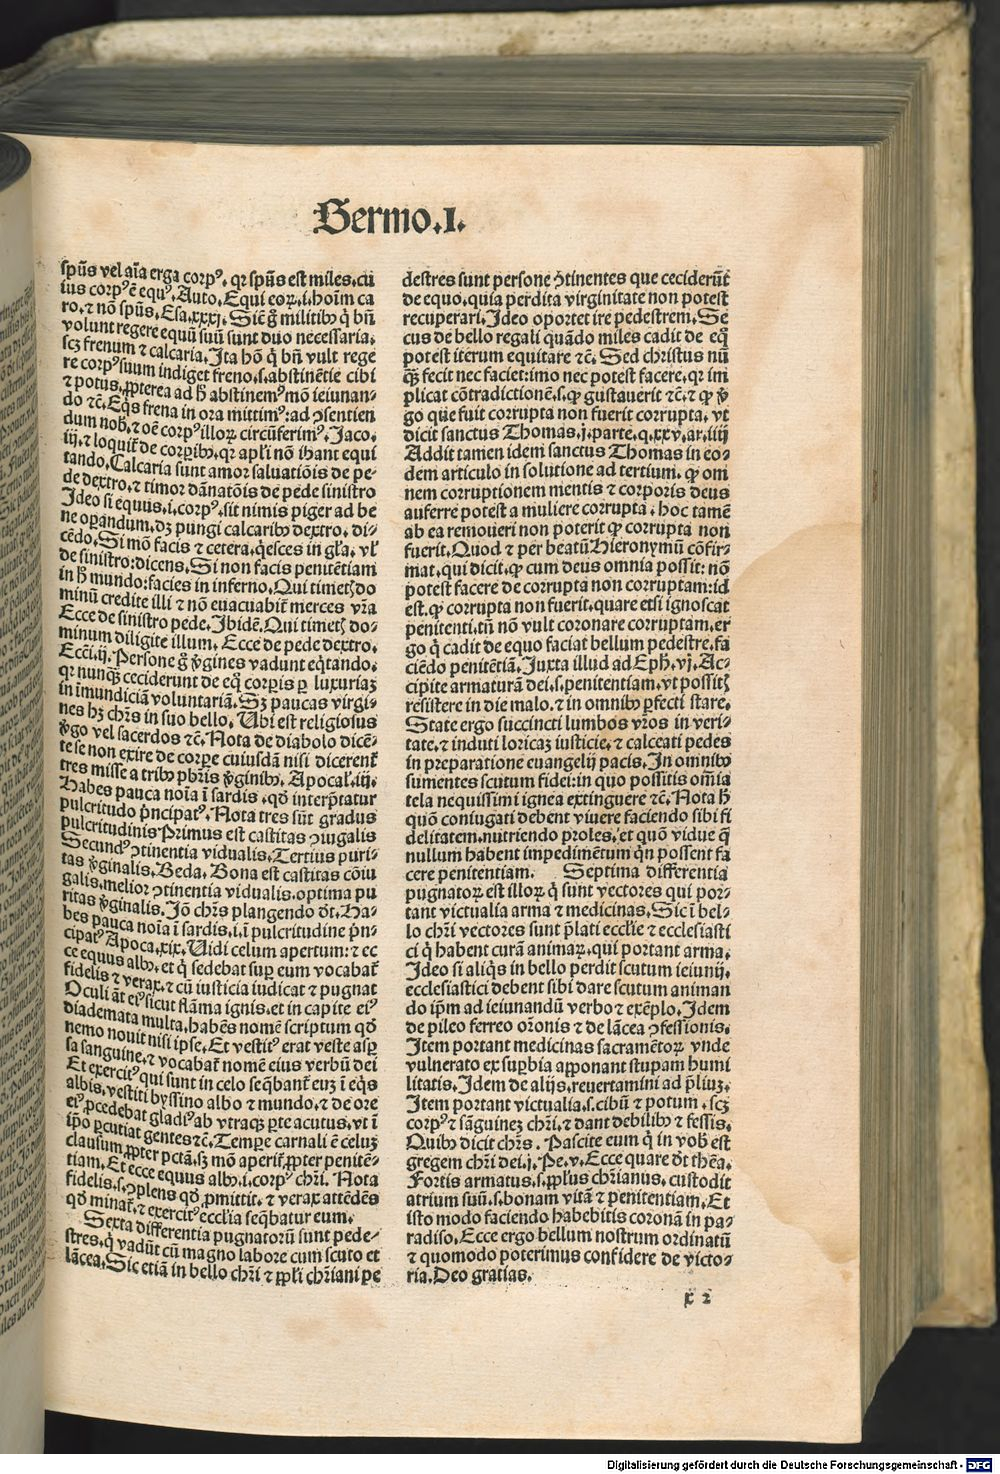 Sermo.I.
spūs vel aīa erga corpꝰ, qꝛ spūs est miles, cu
ius corpꝰ ē equꝰ. Auto. Equi eoꝝ .i. hoīm ca
ro, ⁊ nō spūs. Esa. xxxj. Sic g̊ militibꝫ q̇ bn̄
volunt regere equū suū sunt duo necessaria,
scꝫ frenum ⁊ calcaria. Ita hō q̇ bn̄ vult rege
re corpꝰ suum indiget freno .s. abstinētie cibi
⁊ potus, ꝓpterea ad h̄ abstinemꝰ mō ieiunan-
do ⁊c̄. Eqꝭ frena in ora mittimꝰ: ad ↄsentien
dum nob̄, ⁊ oē corpꝰ illoꝝ circūferimꝰ. Jaco.
iij. ⁊ loquit̄ de corꝑibꝫ, qꝛ apl̄i nō ibant equi
tando. Calcaria sunt amor saluatiōis de pe-
de dextro, ⁊ timor dānatōis de pede sinistro
Ideo si equus .i. corpꝰ, sit nimis piger ad be
ne oꝑandum, dꝫ pungi calcaribꝫ dextro, di-
cēdo. Si mō facis ⁊ cetera, q̇esces in gl̄a, vl̄
de sinistro: dicens. Si non facis penitētiam
in h̄ mundo: facies in inferno. Qui timetꝭ do
minū credite illi ⁊ nō euacuabit̄ merces vr̄a
Ecce de sinistro pede. Ibidē. Qui timetꝭ do-
minum diligite illum. Ecce de pede dextro.
Ecc̄i. ij. Persone g̊ v̓gines vadunt eq̇tando,
qꝛ nunqꝫ ceciderunt de eq̊ corꝑis ꝑ luxuriaꝫ
in īmundiciā voluntariā. Sꝫ paucas virgi-
nes hꝫ chr̄s in suo bello. Ubi est religiosus
v̓go vel sacerdos ⁊c̄. Nota de diabolo dicē-
te se non exire de corꝑe cuiusdā nisi dicerent̄
tres misse a tribꝫ pbr̄is v̓ginibꝫ. Apocal̄. iij.
Habes pauca noīa ī sardis, qd̄ interp̄tatur
pulcritudo p̄ncipatꝰ. Nota tres sūt gradus
pulcritudinis Primus est castitas ↄiugalis
Secundꝰ ↄtinentia vidualis. Tertius puri-
tas v̓ginalis. Beda. Bona est castitas cōiu
galis, melior ↄtinentia vidualis, optima pu
ritas v̓ginalis. Jō chr̄s plangendo dt̄. Ha-
bes pauca noīa ī sardis .i. ī pulcritudine p̄n-
cipatꝰ Apoca. xix. Uidi celum apertum: ⁊ ec
ce equus albꝰ, et q̇ sedebat suꝑ eum vocabat̄
fidelis ⁊ verax, ⁊ cū iusticia iudicat ⁊ pugnat
Oculi āt eiꝰ sicut flāma ignis, et in capite eiꝰ
diademata multa, habēs nomē scriptum qd̄
nemo nouit nisi ipse. Et vestitꝰ erat veste asꝑ
sa sanguine, ⁊ vocabat̄ nomē eius verbū dei
Et exercitꝰ qui sunt in celo seq̄bant̄ euꝫ ī eq̇s
albis, vestiti byssino albo ⁊ mundo, ⁊ de ore
eiꝰ ꝓcedebat gladiꝰ ab vtraqꝫ ꝑte acutus, vt ī
ip̄o ꝑcutiat gentes ⁊c̄. Temꝑe carnali ē celuꝫ
clausum ꝓpter pctā, sꝫ mō aperit̄ ꝓpter penitē-
tiam. Et ecce equus albꝰ .i. corpꝰ chr̄i. Nota
fidelis .s. ↄplens qd̄ ꝓmittit, ⁊ verax attēdēs
qd̄ minat̄, ⁊ exercitꝰ eccl̄ia seq̄batur eum.
Sexta differentia pugnatorū sunt pede-
stres, q̇ vadūt cū magno labore cum scuto et
lācea. Sic etiā in bello chr̄i ⁊ ppl̄i chr̄iani pe
destres sunt persone ↄtinentes que ceciderūt
de equo, quia perdita virginitate non potest
recuperari. Ideo oportet ire pedestrem. Se
cus de bello regali quādo miles cadit de eq̊
potest iterum equitare ⁊c̄. Sed christus nū
qꝫ fecit nec faciet: imo nec potest facere, qꝛ im
plicat cōtradictionē .s. ꝙ gustauerit ⁊c̄. ⁊ ꝙ v̓
go que fuit corrupta non fuerit corrupta, vt
dicit sanctus Thomas .j. parte. q. xxv. ar. iiij
Addit tamen idem sanctus Thomas in eo-
dem articulo in solutione ad tertium. ꝙ om
nem corruptionem mentis ⁊ corporis deus
auferre potest a muliere corrupta, hoc tamē
ab ea remoueri non poterit ꝙ corrupta non
fuerit. Quod ⁊ per beatū Hieronymū cōfir-
mat, qui dicit, ꝙ cum deus omnia possit: nō
potest facere de corrupta non corruptam: id
est, ꝙ corrupta non fuerit, quare etsi ignoscat
penitenti, tn̄ nō vult coronare corruptam, er
go q̇ cadit de equo faciat bellum pedestre, fa
ciēdo penitētiā. Juxta illud ad Eph̄. vj. Ac-
cipite armaturā dei .s. penitentiam, vt possitꝭ
resistere in die malo, ⁊ in omnibꝫ ꝑfecti stare.
State ergo succincti lumbos vr̄os in veri-
tate, ⁊ induti loricaꝫ iusticie, ⁊ calceati pedes
in preparatione euangelij pacis. In omnibꝫ
sumentes scutum fidei: in quo possitis om̄ia
tela nequissimi ignea extinguere ⁊c̄. Nota h̄
quō coniugati debent viuere faciendo sibi fi
delitatem, nutriendo proles, et quō vidue q̄
nullum habent impedimētum qn̄ possent fa
cere penitentiam. Septima differentia
pugnatoꝝ est illoꝝ q̇ sunt vectores qui por-
tant victualia arma ⁊ medicinas. Sic ī bel-
lo chr̄i vectores sunt p̄lati eccl̄ie ⁊ ecclesiasti
ci q̇ habent curā animaꝝ, qui portant arma.
Ideo si aliq̇s in bello perdit scutum ieiunij,
ecclesiastici debent sibi dare scutum animan
do ip̄m ad ieiunandū verbo ⁊ exēplo. Idem
de pileo ferreo or̄onis ⁊ de lācea ↄfessionis.
Item portant medicinas sacramētoꝝ vnde
vulnerato ex suꝑbia apponant stupam humi
litatis. Idem de alijs, reuertamini ad p̄liuꝫ.
Item portant victualia .s. cibū ⁊ potum, scꝫ
corpꝰ ⁊ sāguineꝫ chr̄i, ⁊ dant debilibꝫ ⁊ fessis.
Quibꝫ dicit chr̄s. Pascite eum q̇ in vob̄ est
gregem chr̄i dei .j. Pe. v. Ecce quare dt̄ thēa.
Fortis armatus .s. ppl̄us chr̄ianus, custodit
atrium suū .s. bonam vitā ⁊ penitentiam. Et
isto modo faciendo habebitis coronā in pa-
radiso. Ecce ergo bellum nostrum ordinatū
⁊ quomodo poterimus confidere de victo-
ria. Deo gratias.
x 2
Digitalisierung gefördert durch die Deutsche Forschungsgemeinschaft - DFG